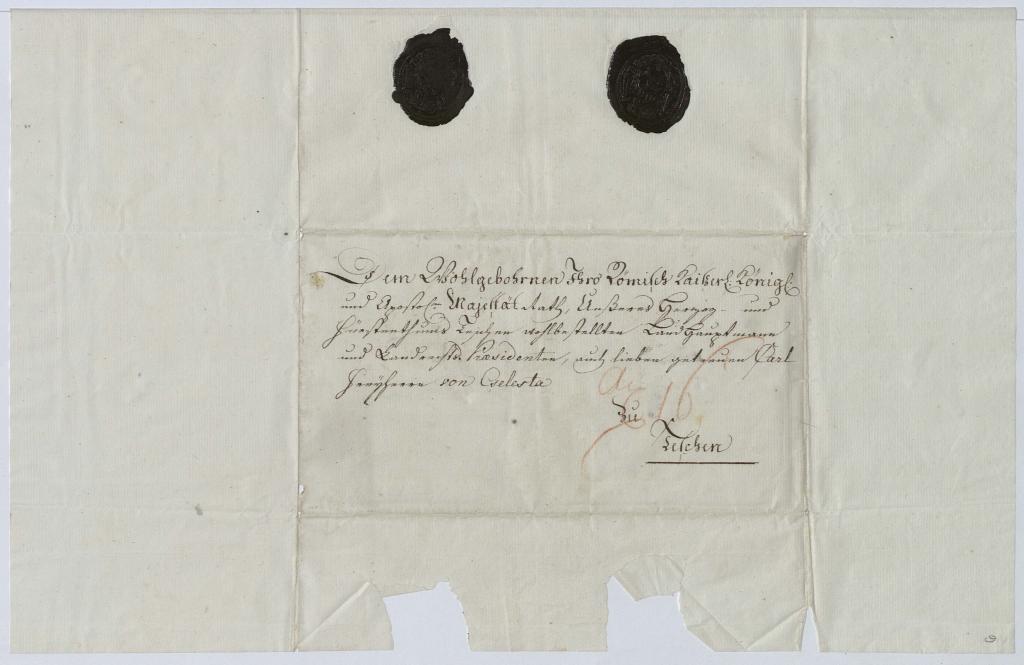 Dem Wohlgebohrnen Ihro Römisch Kaiserl. Königl.
und Apostol. Majestät Rath, Unßeres Herzog- und
Fürstenthums Teschen wohlbestellten Landshauptmann
und Landrechts Præsidenten, auch lieben getreuen Carl
Freyherrn von Celesta
Zu
Teschen